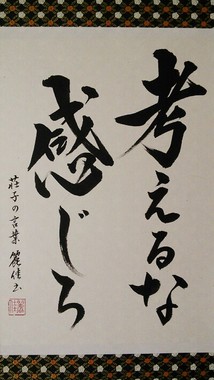 考えるな
感じろ
荘子の言葉 麗佳书